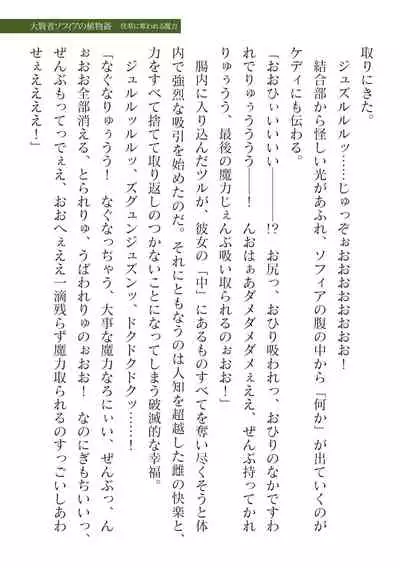 大賢者ソフィアの植物姦　仇草に奪われる魔力
取りにきた。
　ジュズルルルッ……じゅっぞぉおおおおおおおお！
　結合部から怪しい光があふれ、ソフィアの腹の中から「何か」が出ていくのが
ケディにも伝わる。
「おおひぃいいいい――――!?　お尻っ、おひり吸われっ、おひりのなかですわ
れでりゅぅうううう――！　んおはぁあダメダメダメぇええ、ぜんぶ持ってかれ
りゅぅうう、最後の魔力じぇんぶ吸い取られるのぉおお！」
　腸内に入り込んだツルが、彼女の「中」にあるものすべてを奪い尽くそうと体
内で強烈な吸引を始めたのだ。それにともなうのは人知を超越した雌の快楽と、
力をすべて捨てて取り返しのつかないことになってしまう破滅的な幸福。
　ジュルルッルルッ、ズグュンジュズンッ、ドクドクドクッ……！
「なぐなりゅぅうう！　なぐなっちゃう、大事な魔力なろにぃい、ぜんぶっ、ん
ぉおお全部消える、とられりゅ、うばわれりゅのぉおお！　なのにぎもちいいっ、
ぜんぶもってっでぇえ、おおへぇええ一滴残らず魔力取られるのすっごいしあわ
せぇえええええ！」